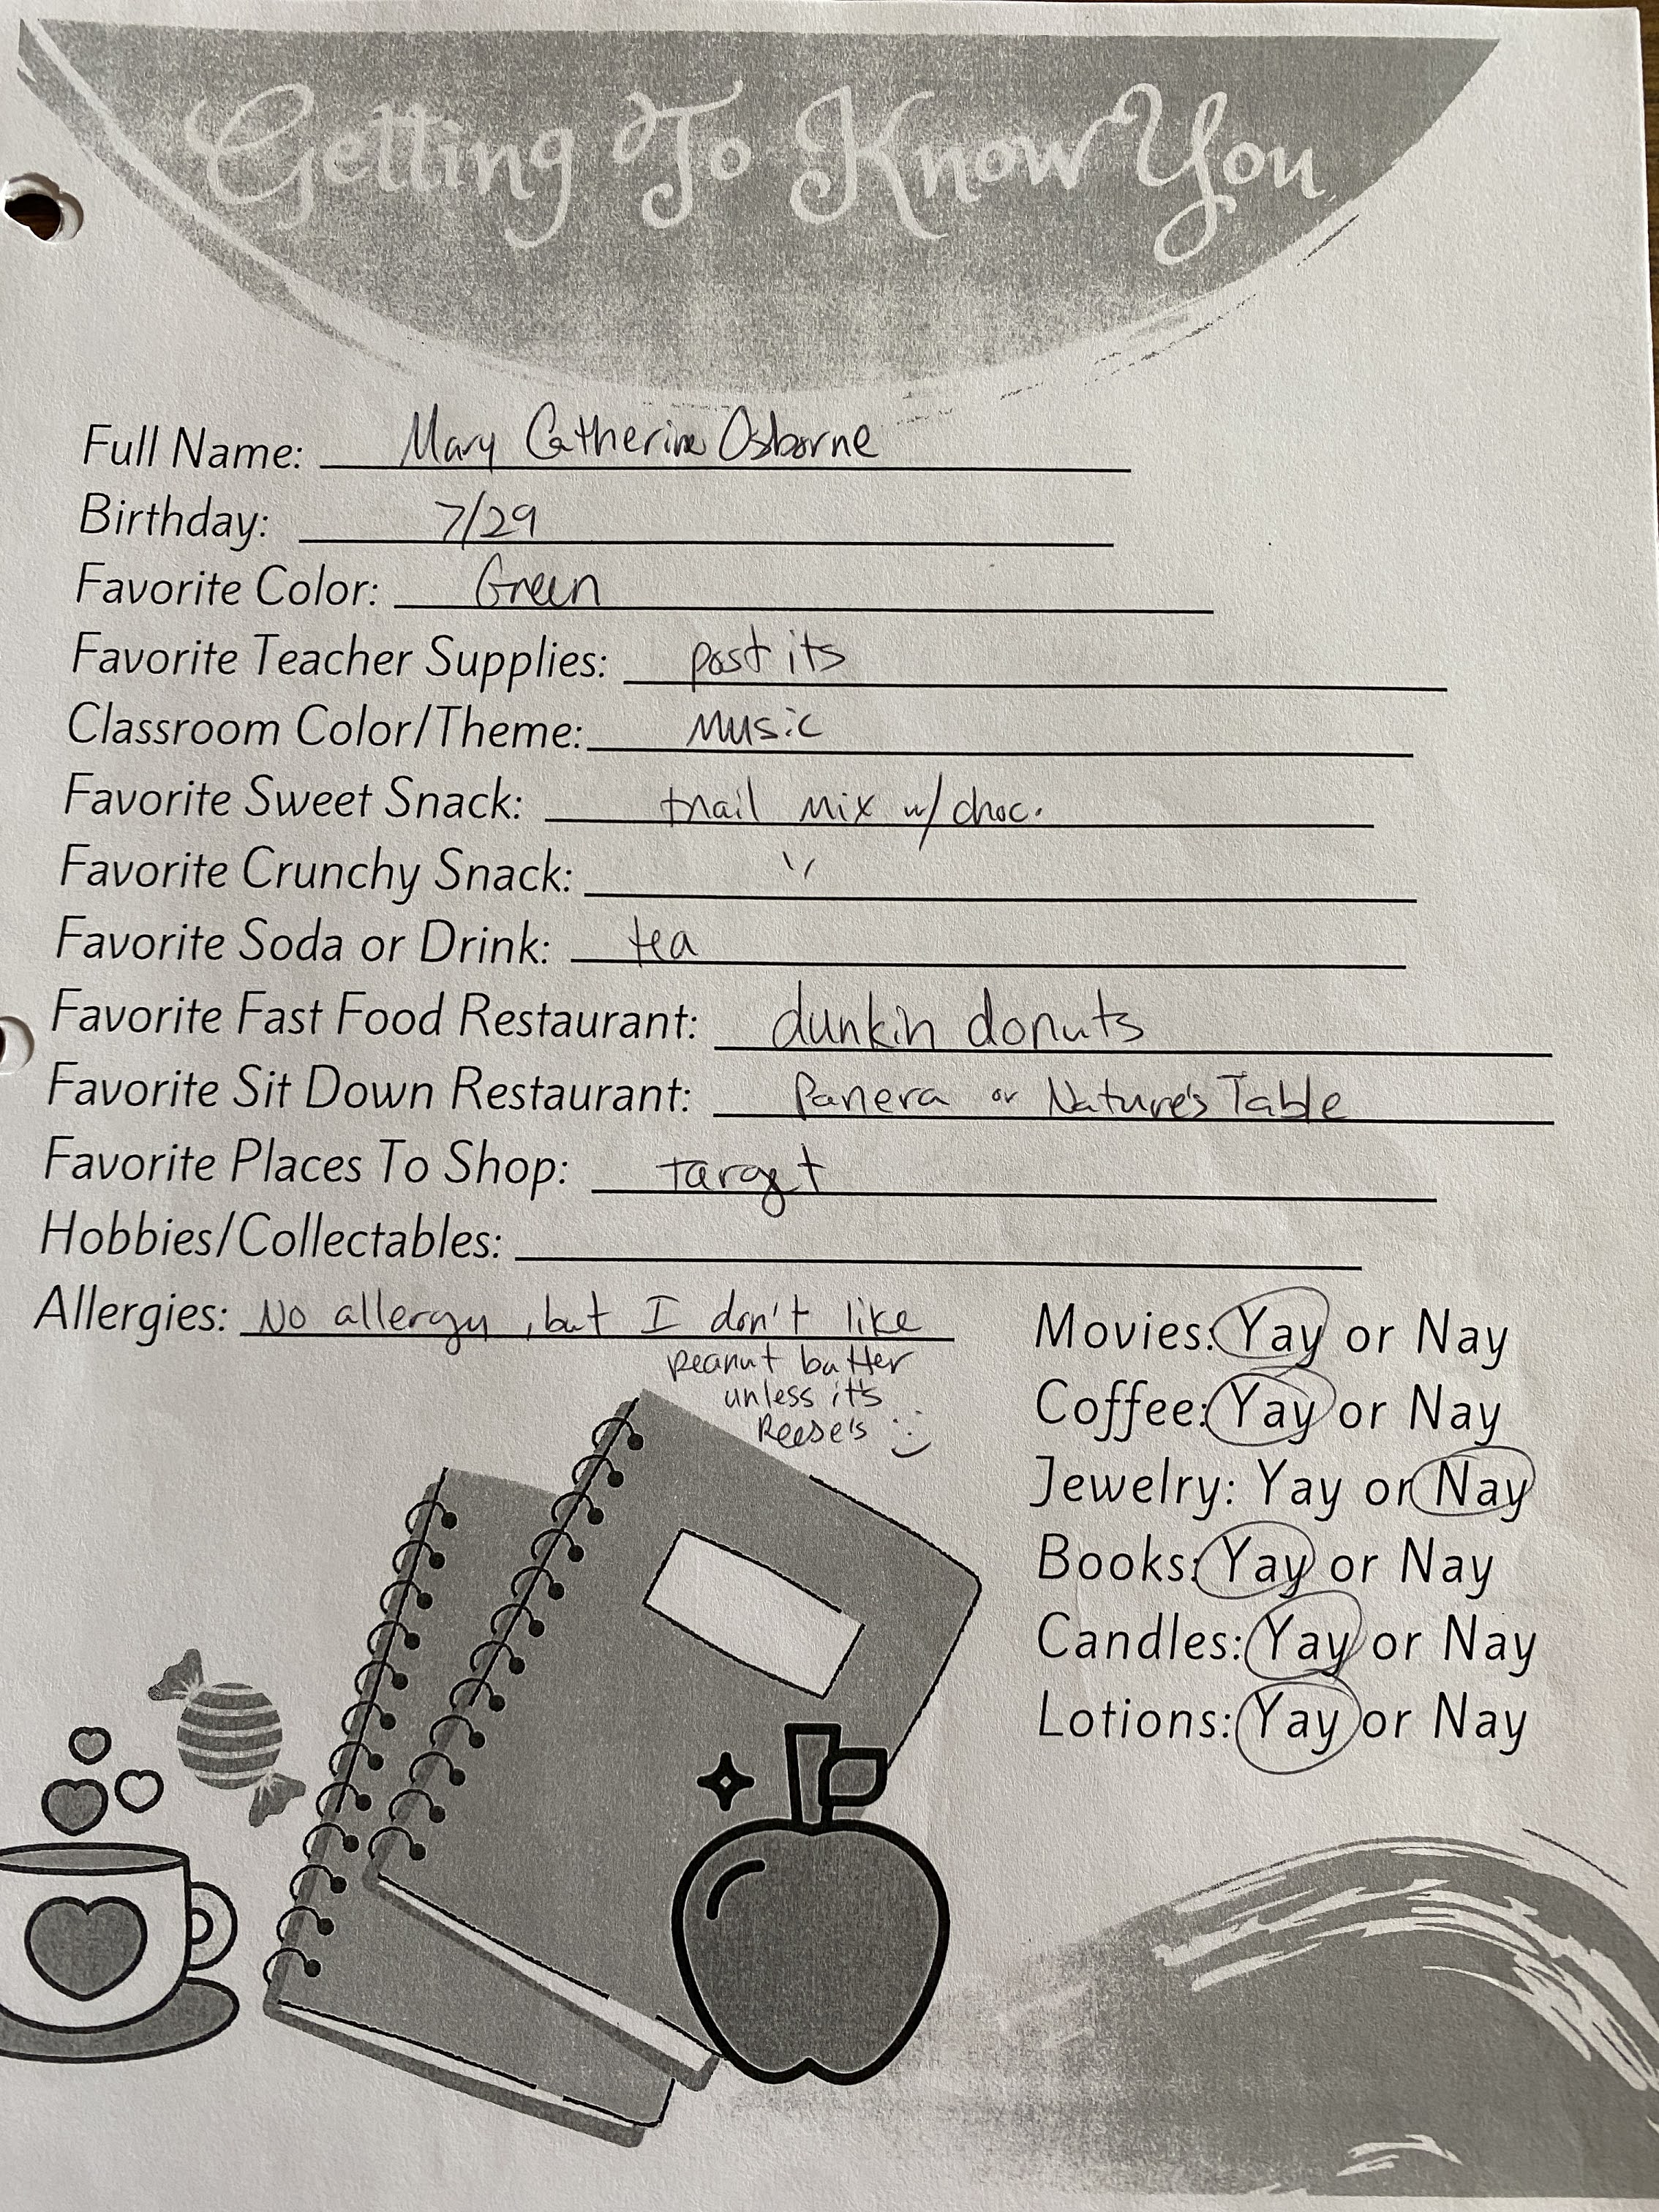 Getting To Know You
Full Name: Mary Catherine Osborne
Birthday: 7/29
Favorite Color: Green
Favorite Teacher Supplies: post its
Classroom Color/Theme: Music
Favorite Sweet Snack: trail mix w/ choc.
Favorite Crunchy Snack: "
Favorite Soda or Drink: tea
Favorite Fast Food Restaurant: dunkin donuts
Favorite Sit Down Restaurant: Panera or Nature's Table
Favorite Places To Shop: Target
Hobbies/Collectables:
Allergies: No allergy, but I don't like
peanut butter
unless it's
Reese's :)
Movies: Yay or Nay
Coffee: Yay or Nay
Jewelry: Yay or Nay
Books: Yay or Nay
Candles: Yay or Nay
Lotions: Yay or Nay